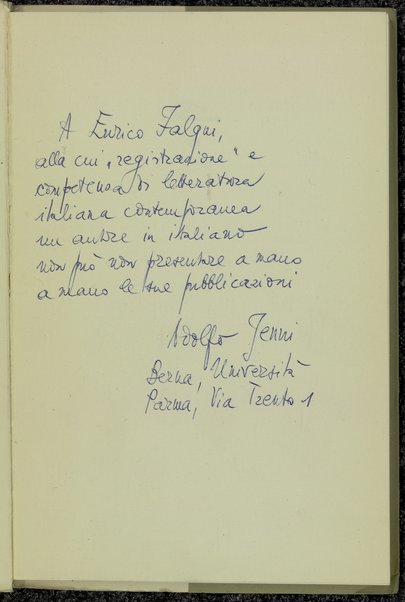 A Enrico Falqui,
alla cui „registrazione" e
competenza di letteratura
italiana contemporanea
un autore in italiano
non può non presentare a mano
a mano le sue pubblicazioni
Adolfo Jenni
Berna, Università
Parma, Via Trento 1